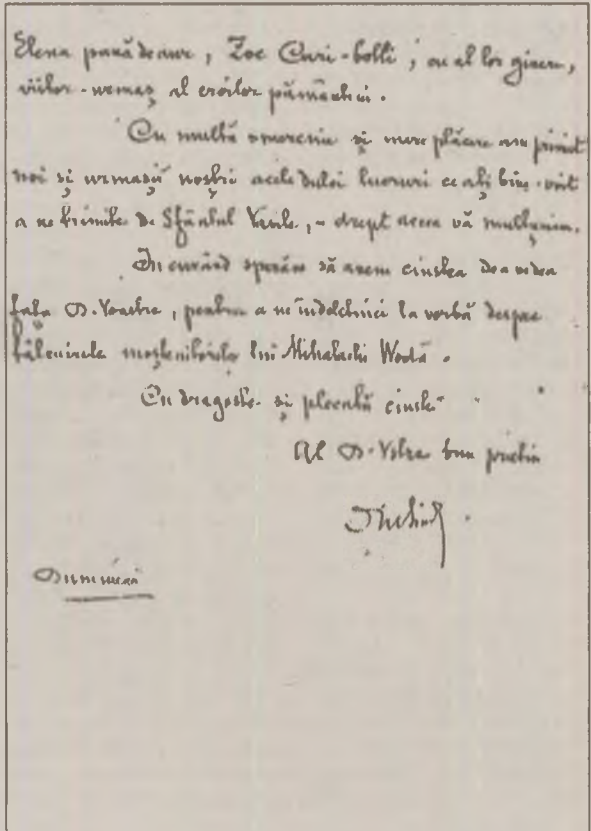 Elena pană de aur, Zoe Curi-bolli, cu al lor ginere,
viilor-urmaș al eroilor pământui.
Cu multă smerenie și mare plăcere am primit
noi și urmașii noștri acele dulci lucruri ce ați bine-voit
a ne trimite de Sfântul Vasile, – drept aceea vă mulțumim.
In curând sperăm să avem cinstea dea vedea
fața D. Voastre, pentru a ne îndelchinici la vorbă despre
tâlcuirele moștenitorilor lui Mihalachi Wodă.
Cu dragoste și plecată cinste
Al D-Vstre bun prietin
Duminică